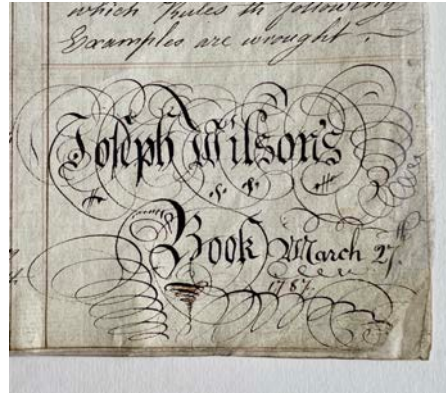 which Rules th following
Examples are wrought.
Joseph Wilson's
Book March 27.
1787.